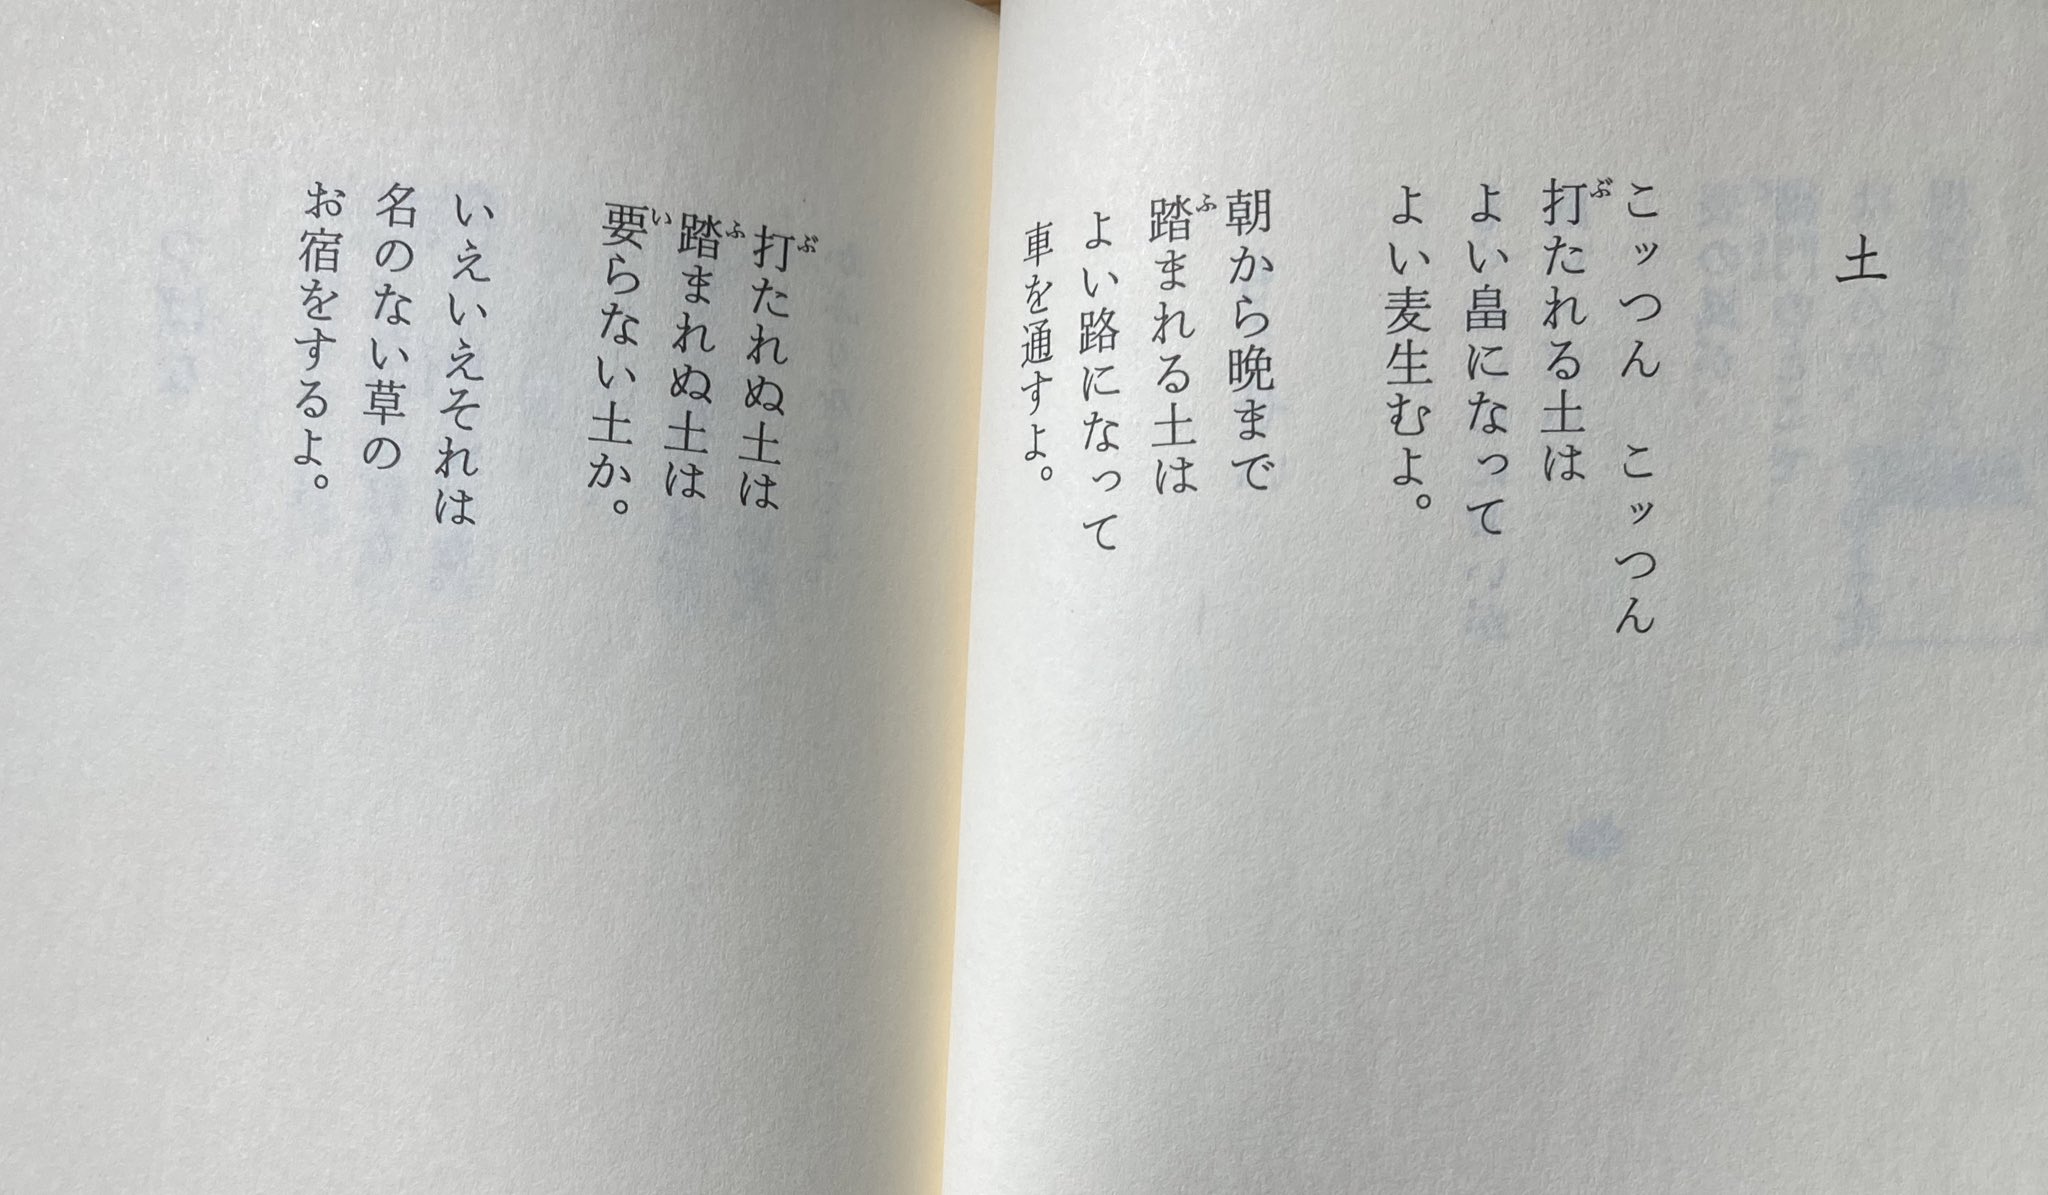 土
こッつん　こッつん
打たれる土は
よい畠になって
よい麦生むよ。
朝から晩まで
踏まれる土は
よい路になって
車を通すよ。
打たれぬ土は
踏まれぬ土は
要らない土か。
いえいえそれは
名のない草の
お宿をするよ。